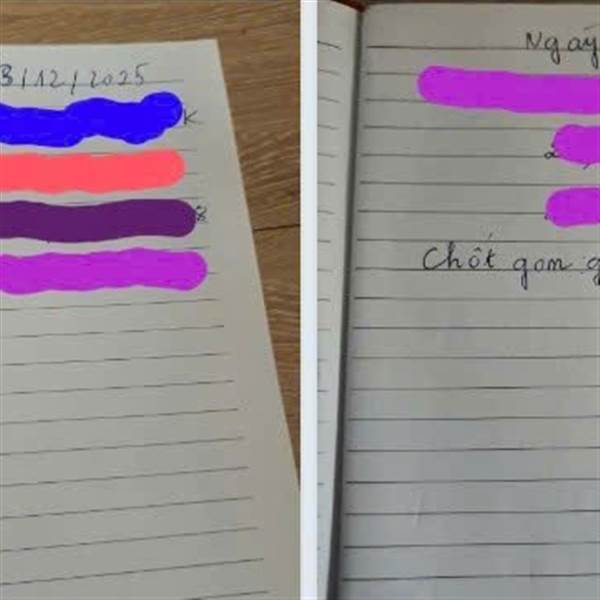 3/12/2025
K
8
Ngaỳ
Chốt gon g